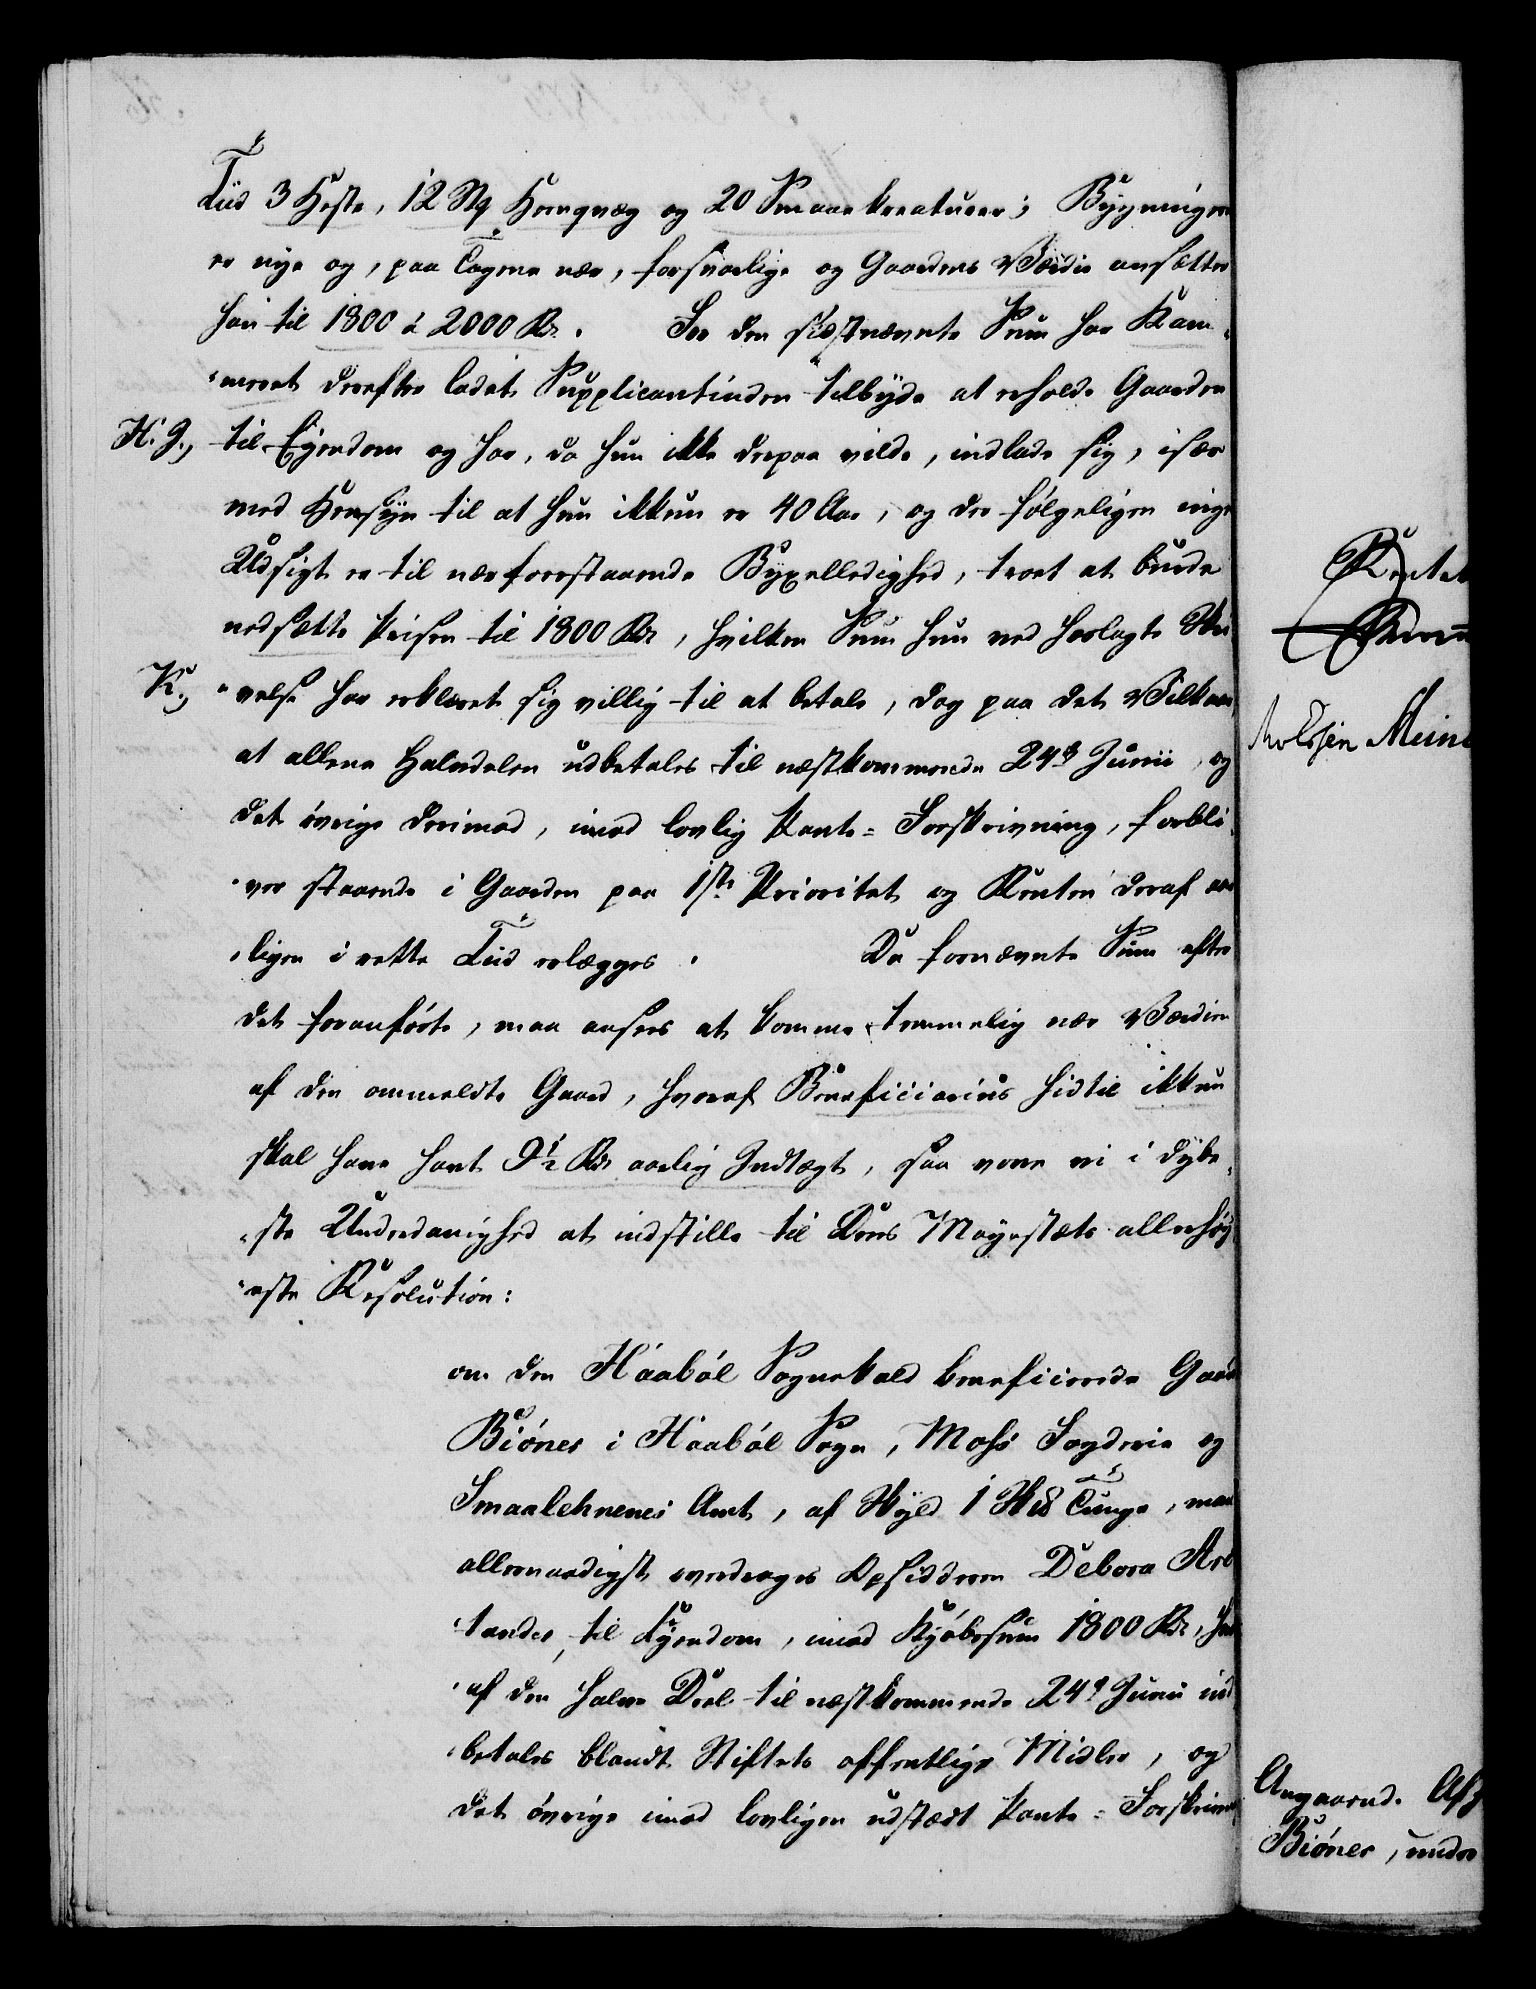 Tiid 3 Heste, 12 Stk Hornqvæg og 20 Smaaekreaturer; Bygningerne
er nye og, paa Tagene nær, forsvarlige og Gaardens Værdie ansætter
han til 1800 à 2000 Rd. For den sidstnævnte Sum har Kam-
meret derefter ladet Supplicantinden tilbyde at erholde Gaarden
H. J., til Eyendom og har, da hun ikke derpaa vilde, indlade sig, især
med Hensyn til at hun ikkun er 40 Aar, og der følgeligen ingen
Udsigt er til nær forestaaende Bygselledighed, troet at burde
nedsætte Prisen til 1800 Rd, hvilken Sum hun ved hoslagte Skri-
K., velse har erklæret sig villig til at betale, dog paa det Vilkaar,
at allene Halvdelen udbetales til næstkommende 24d Junii, og
det øvrige derimod, imod lovlig Pante-Forskrivning, forbli-
ver staaende i Gaarden paa 1ste Prioritet og Renten deraf aar-
ligen i rette Tiid erlægges. Da fornævnte Sum efter
det foranførte, maa ansees at komme temmelig nær Værdien
af den ommeldte Gaard, hvoraf Beneficiarius hidtil ikkun
skal have havt 9½ Rd aarlig Indtægt, saa vove vi i dybe-
ste Underdanighed at indstille til Deres Mayestæts allerhøy-
este Resolution:
om den Haabøl Sognekald beneficerede Gaard
Biøner i Haabøl Sogn, Moss Fogderie og
Smaalehnenes Amt, af Skyld 1 Skd Tunge, maae
allernaadigst overdrages Opsidderen Debora Are-
tander, til Eyendom, imod Kjøbesum 1800 Rd, hvor-
af den halve Deel til næstkommende 24d Junii ind-
betales blandt Stiftets offentlige Midler, og
det øvrige imod lovligen udstædt Pante-Forskrivn
Rentek
Meine
Angaaende Afh
Biøner, under